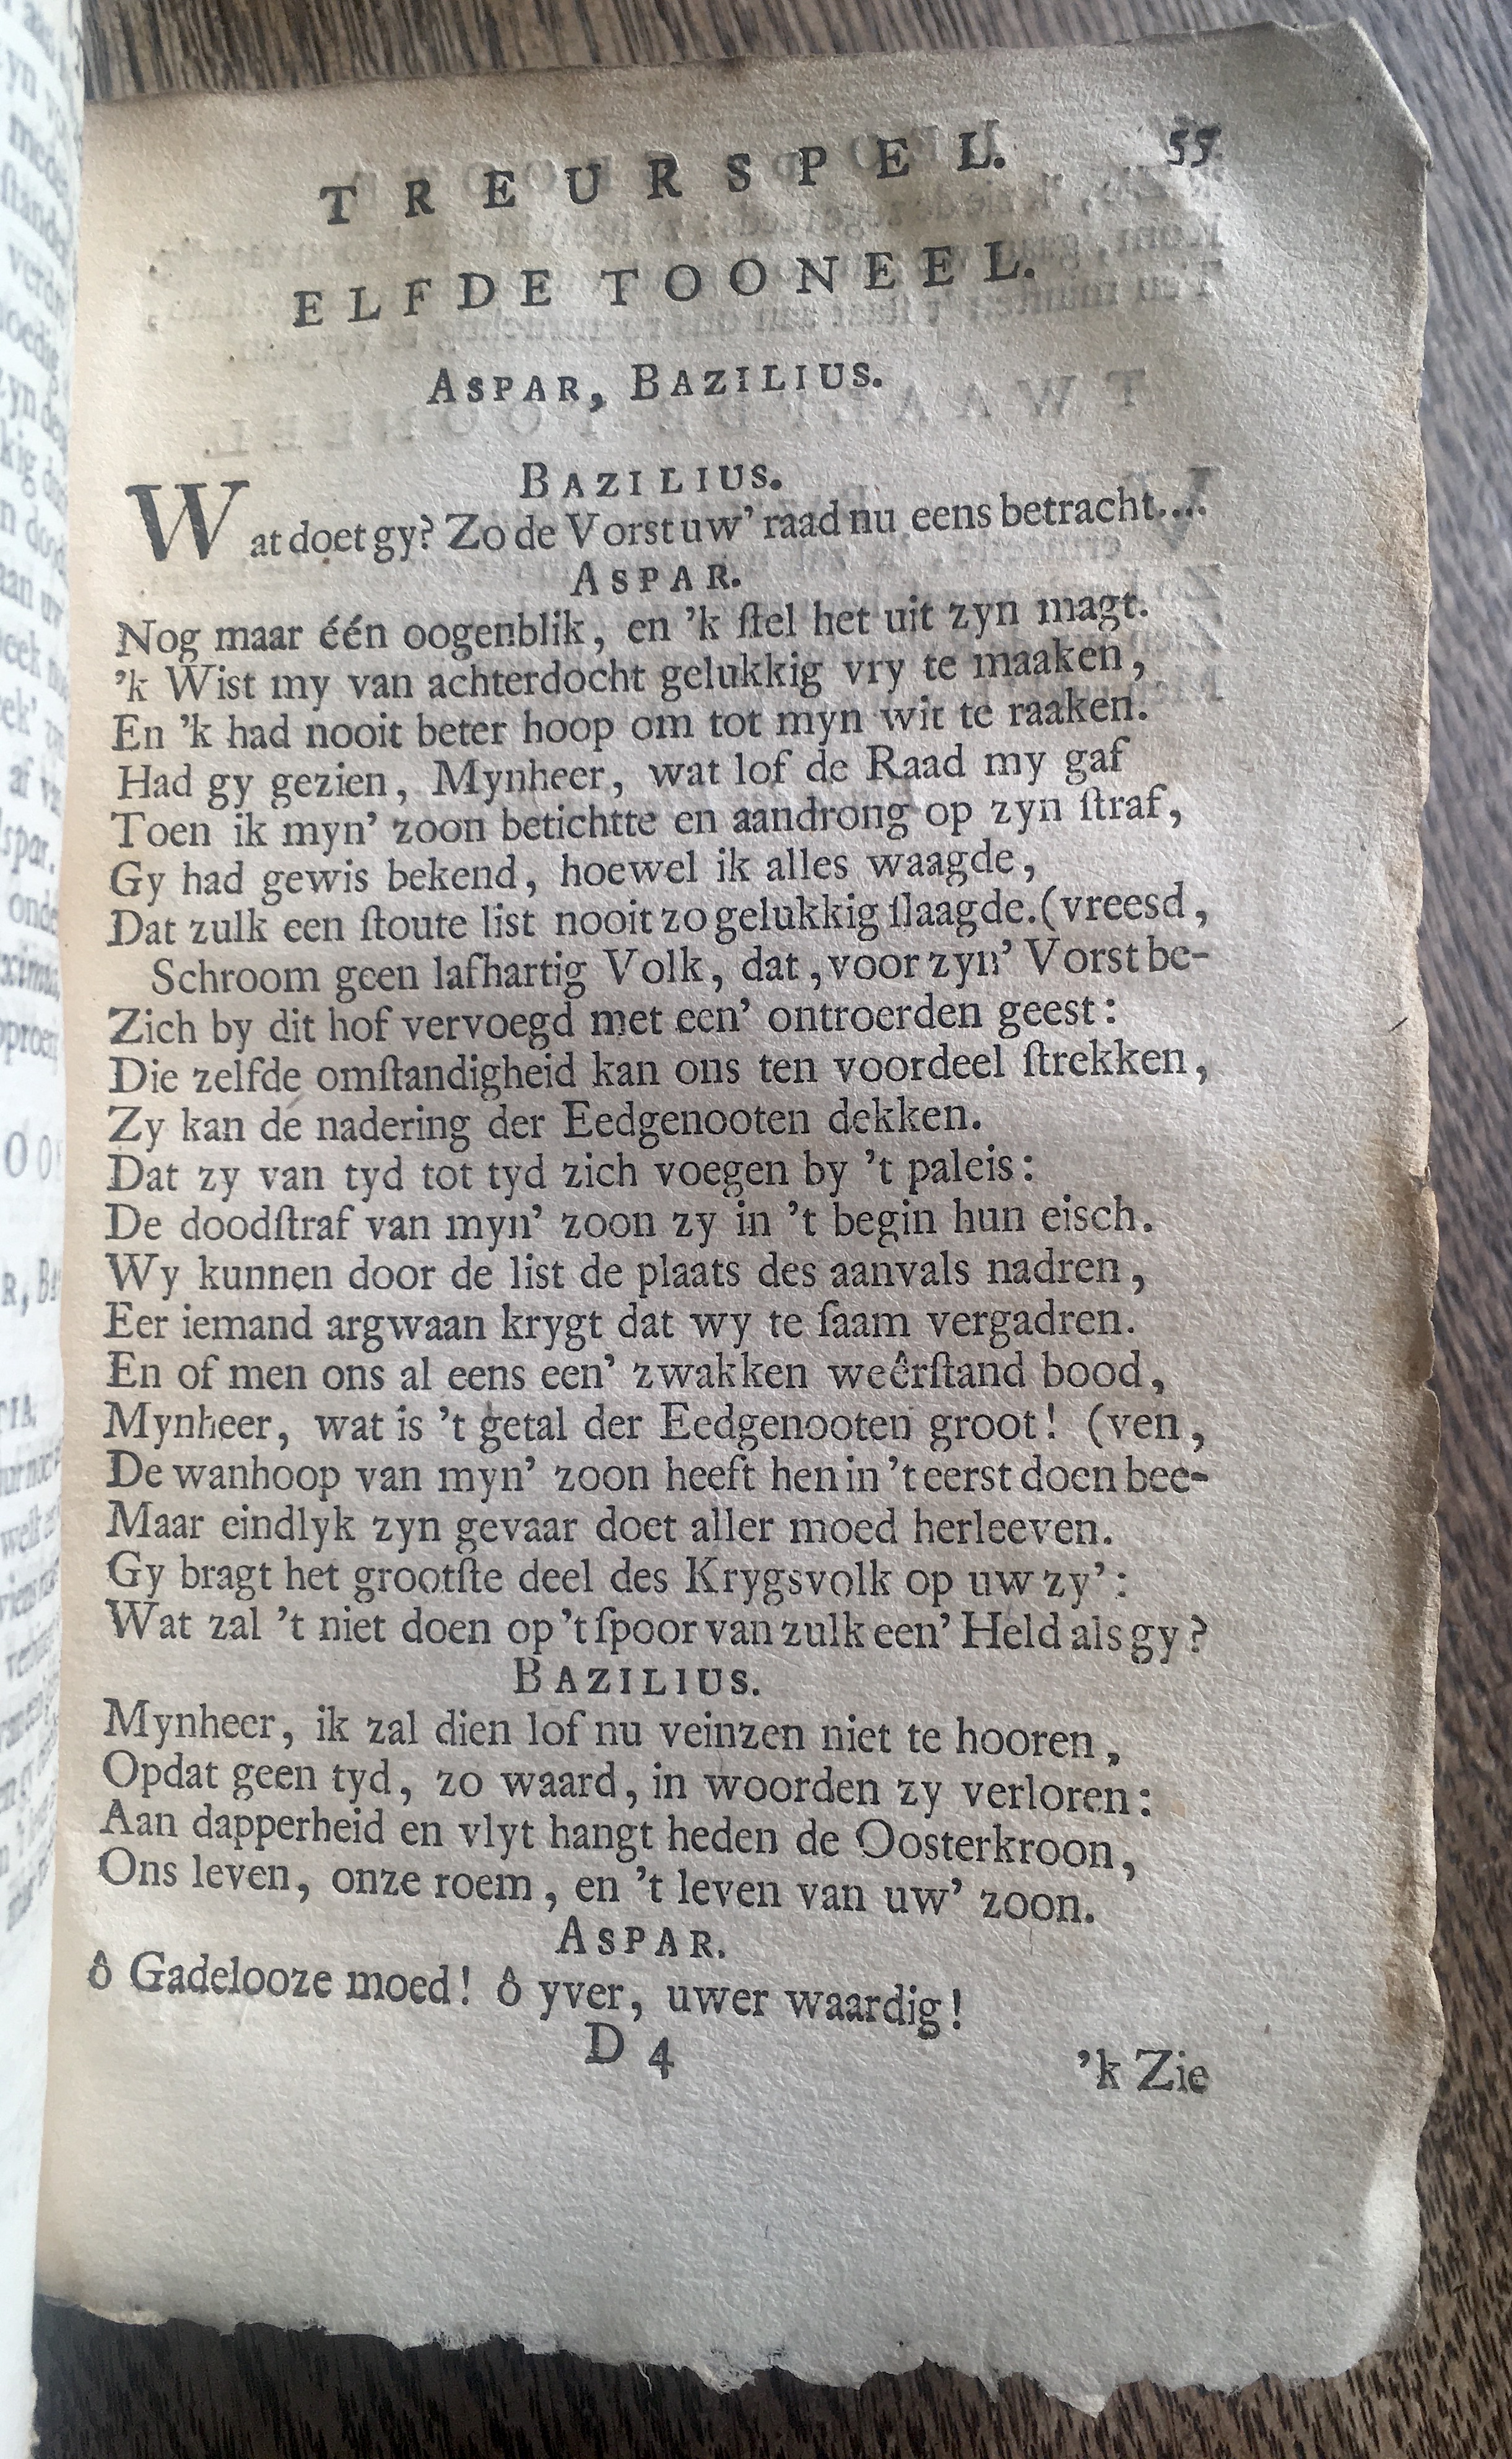 TREURSPEL. 55
ELFDE TOONEEL.
ASPAR, BAZILIUS.
BAZILIUS.
Wat doet gy? Zo de Vorst uw’ raad nu eens betracht....
ASPAR.
Nog maar één oogenblik, en ’k ſtel het uit zyn magt.
’k Wist my van achterdocht gelukkig vry te maaken,
En ’k had nooit beter hoop om tot myn wit te raaken.
Had gy gezien, Mynheer, wat lof de Raad my gaf
Toen ik myn’ zoon betichtte en aandrong op zyn ſtraf,
Gy had gewis bekend, hoewel ik alles waagde,
Dat zulk een ſtoute list nooit zo gelukkig ſlaagde. (vreesd,
Schroom geen lafhartig Volk, dat, voor zyn’ Vorst be-
Zich by dit hof vervoegd met een’ ontroerden geest:
Die zelfde omſtandigheid kan ons ten voordeel ſtrekken,
Zy kan de nadering der Eedgenooten dekken.
Dat zy van tyd tot tyd zich voegen by ’t paleis:
De doodſtraf van myn’ zoon zy in ’t begin hun eisch.
Wy kunnen door de list de plaats des aanvals nadren,
Eer iemand argwaan krygt dat wy te ſaam vergadren.
En of men ons al eens een’ zwakken weêrſtand bood,
Mynheer, wat is ’t getal der Eedgenooten groot! (ven,
De wanhoop van myn’ zoon heeft hen in ’t eerst doen bee-
Maar eindlyk zyn gevaar doet aller moed herleeven.
Gy bragt het grootſte deel des Krygsvolk op uw zy’:
Wat zal ’t niet doen op ’t ſpoor van zulk een’ Held als gy?
BAZILIUS.
Mynheer, ik zal dien lof nu veinzen niet te hooren,
Opdat geen tyd, zo waard, in woorden zy verloren:
Aan dapperheid en vlyt hangt heden de Oosterkroon,
Ons leven, onze roem, en ’t leven van uw’ zoon.
ASPAR.
ô Gadelooze moed! ô yver, uwer waardig!
D 4
’k Zie